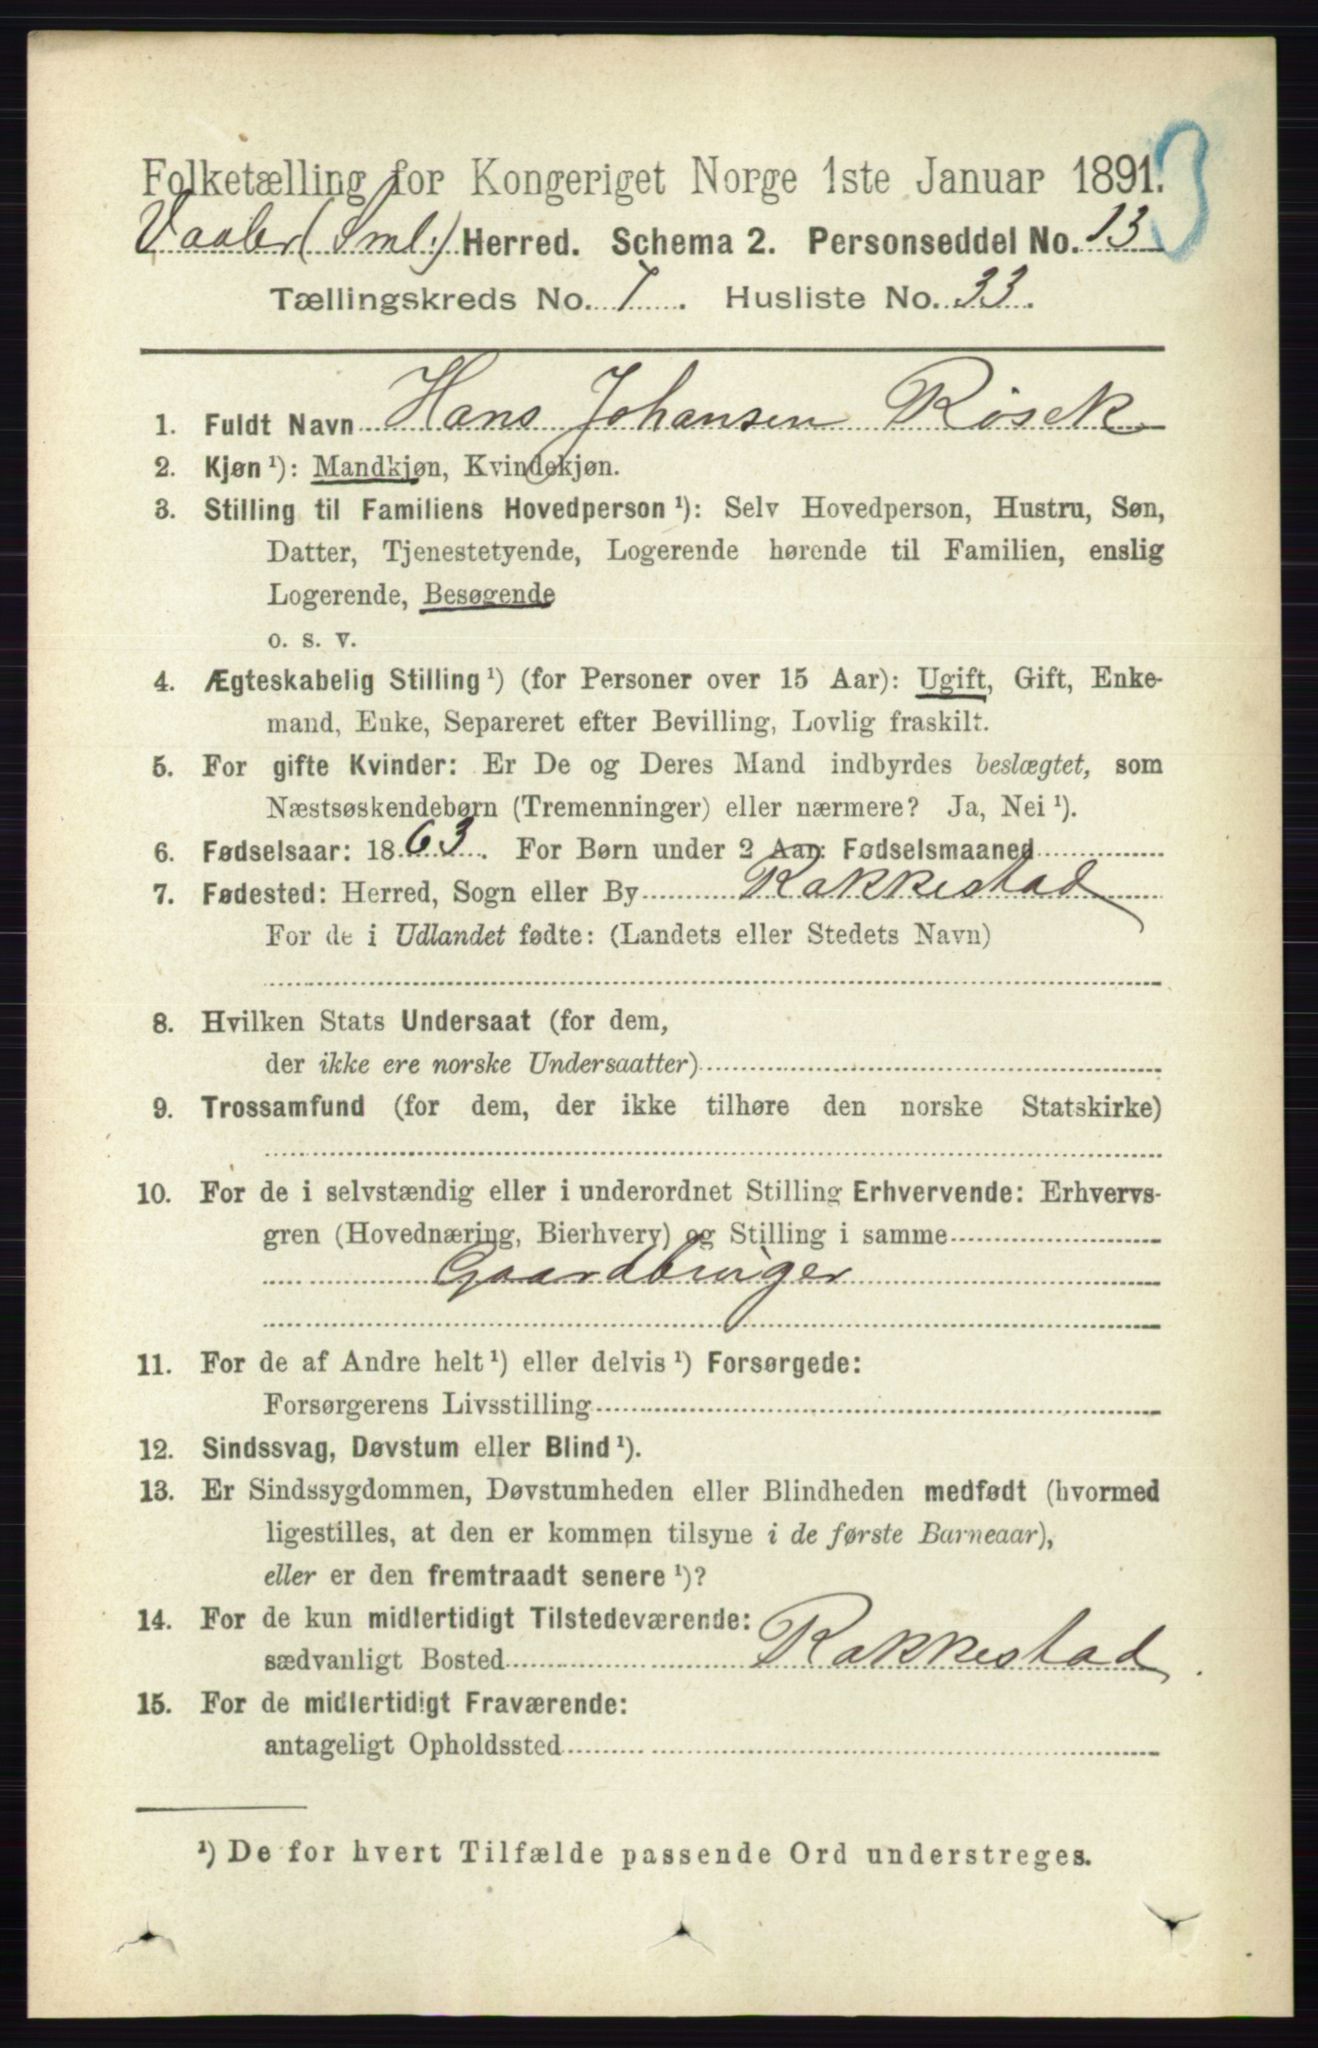 3
Folketælling for Kongeriget Norge 1ste Januar 1891.
Vaaler (Sml.) Herred. Schema 2. Personseddel No. 13
Tællingskreds No. 7. Husliste No. 33.
1. Fuldt Navn Hans Johansen Rösek
2. Kjøn ¹): Mandkjøn, Kvindekjøn.
3. Stilling til Familiens Hovedperson ¹): Selv Hovedperson, Hustru, Søn,
Datter, Tjenestetyende, Logerende hørende til Familien, enslig
Logerende, Besøgende
o. s. v.
4. Ægteskabelig Stilling ¹) (for Personer over 15 Aar): Ugift, Gift, Enke-
mand, Enke, Separeret efter Bevilling, Lovlig fraskilt.
5. For gifte Kvinder: Er De og Deres Mand indbyrdes beslægtet, som
Næstsøskendebørn (Tremenninger) eller nærmere? Ja, Nei ¹).
6. Fødselsaar: 1863. For Børn under 2 Aar: Fødselsmaaned
7. Fødested: Herred, Sogn eller By Rakkestad
For de i Udlandet fødte: (Landets eller Stedets Navn)
8. Hvilken Stats Undersaat (for dem,
der ikke ere norske Undersaatter)
9. Trossamfund (for dem, der ikke tilhøre den norske Statskirke)
10. For de i selvstændig eller i underordnet Stilling Erhvervende: Erhvervs-
gren (Hovednæring, Bierhverv) og Stilling i samme
Gaardbruger
11. For de af Andre helt ¹) eller delvis ¹) Forsørgede:
Forsørgerens Livsstilling
12. Sindssvag, Døvstum eller Blind ¹).
13. Er Sindssygdommen, Døvstumheden eller Blindheden medfødt (hvormed
ligestilles, at den er kommen tilsyne i de første Barneaar),
eller er den fremtraadt senere ¹)?
14. For de kun midlertidigt Tilstedeværende:
sædvanligt Bosted Rakkestad.
15. For de midlertidigt Fraværende:
antageligt Opholdssted
¹) De for hvert Tilfælde passende Ord understreges.